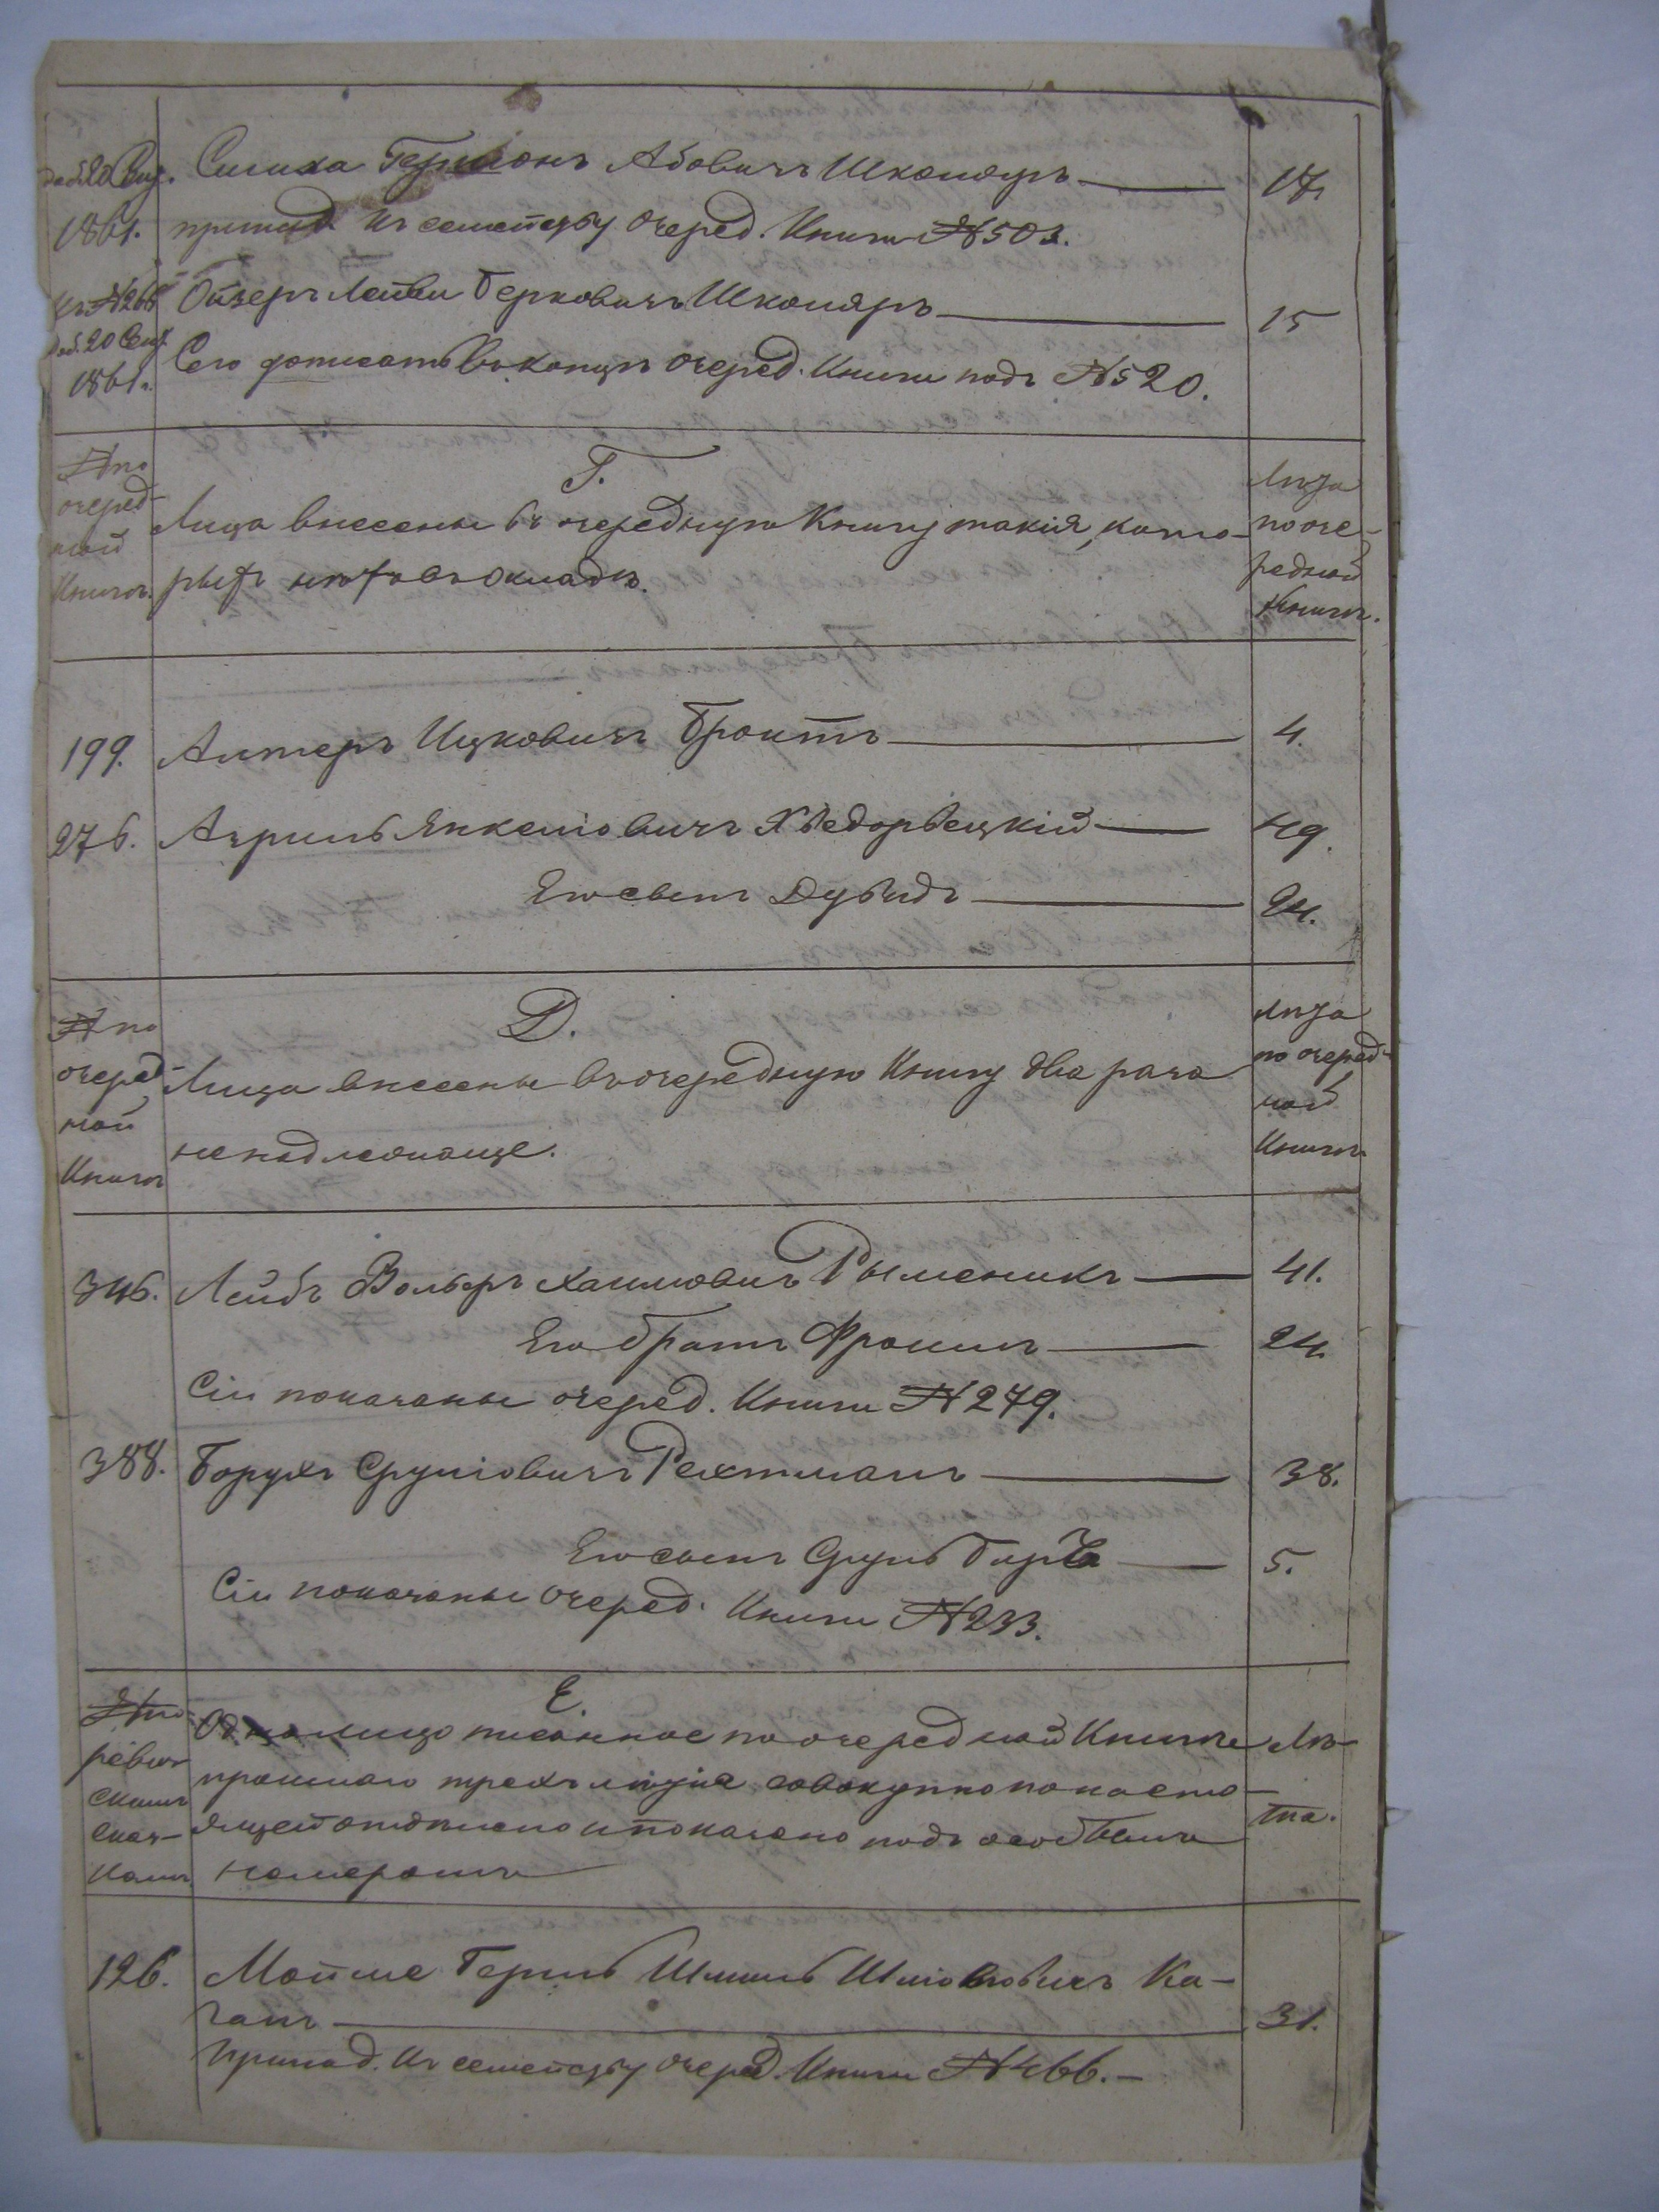 доб. 20 Сент. Симха Гершонъ Абовичъ Школяръ 17.
1861. принад. къ семейству очеред. Книги №503.
къ №266 Ойзеръ Лейви Берковичъ Школяръ 15
доб. 20 Сент. Сего дописать въ концѣ очеред. Книги подъ №520.
1861 г.
№ по
очеред-
ной
Книгѣ.
Г.
Лица внесены въ очередную Книгу такія, кото-
рыхъ нѣтъ въ окладѣ.
Лѣта
по оче-
редной
Книгѣ.
199. Алтеръ Ицковичъ Бронтъ 4.
276. Азриль Янкелiовичъ 49.
Его сынъ Дувидъ 24.
№ по
очеред-
ной
Книгѣ
Д.
Лица внесены въ очередную Книгу два раза
не надлежаще.
Лѣта
по очеред-
ной
Книгѣ
346. Лейбъ Вольфъ Хаимовичъ Рыменикъ 41.
Его братъ Фроимъ 24.
Сіи показаны очеред. Книги №279.
388. Борухъ Срулiовичъ Рехтманъ 38.
Его сынъ Сруль 5.
Сіи показаны очеред. Книги №233.
№ по
ревиз-
скимъ
сказ-
камъ
Е.
Одно лицо писанное по очередной Книгѣ
прошлаго трехълѣтія совокупно по насто-
ящей отдѣлено и показано подъ особымъ
номеромъ
Лѣ-
та.
126. Мойше Герль Шмиль Ка-
ганъ 31.
Принад. къ семейству очеред. Книги №466.